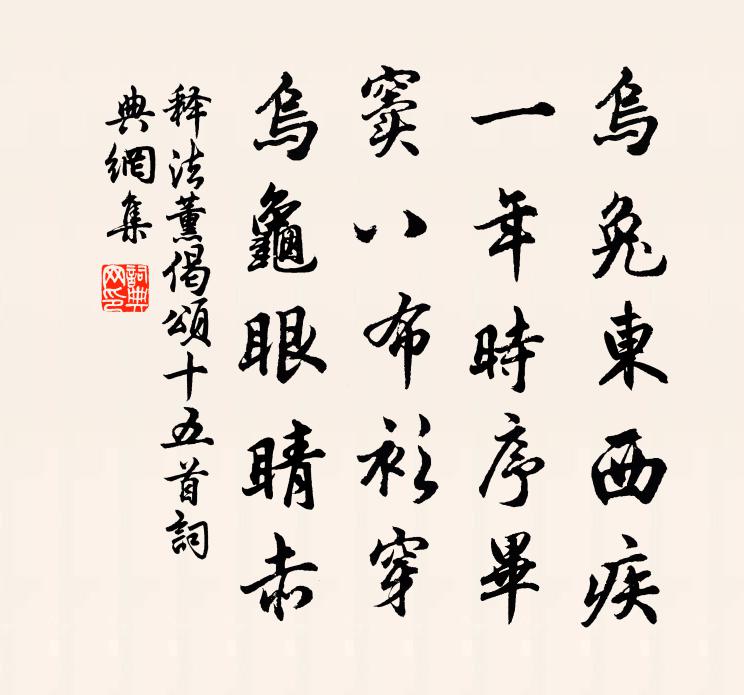 烏兔東西疾
一年時序畢
竇八布衫穿
烏龜眼睛赤
释法薰偈頌十五首詞
典網集
詞典网印